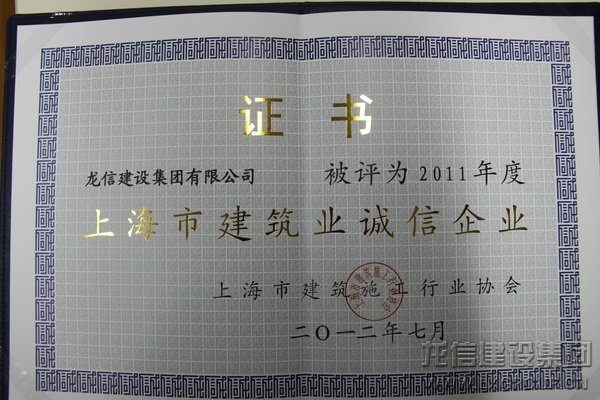 证书
龙信建设集团有限公司 被评为2011年度
上海市建筑业诚信企业
上海市建筑施工行业协会
二〇一二年七月
龙信建设集团